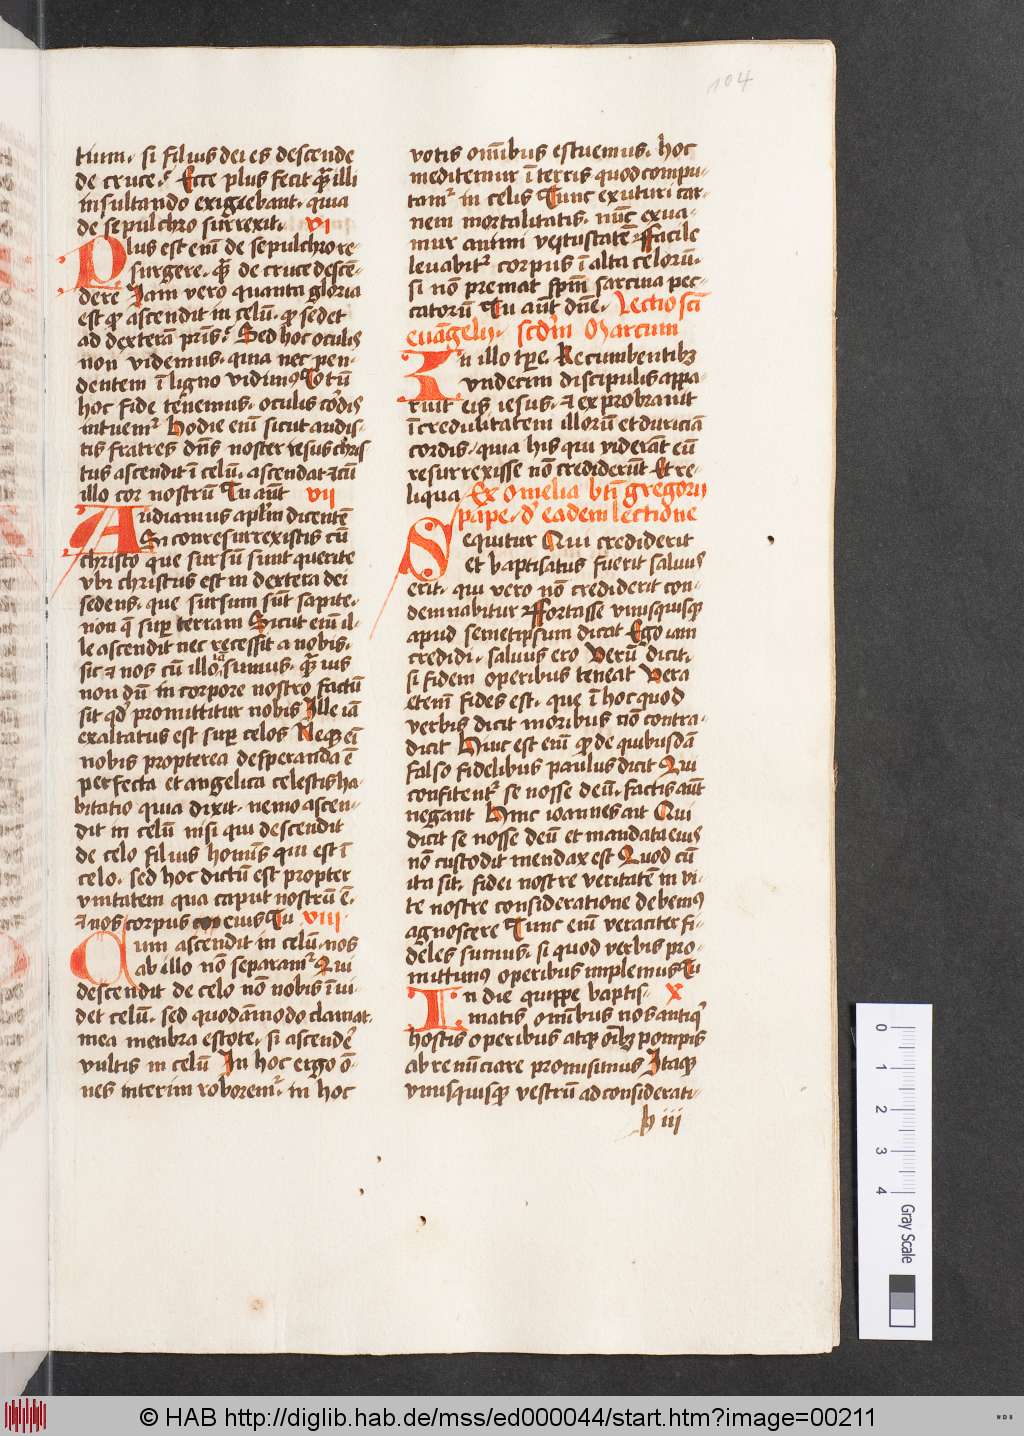 104
tium. si filius dei es descende
de cruce. Ecce plus fecit qᷓ illi
insultando exigiebant. quia
de sepulchro surrexit. vi
Plus est em̄ de sepulchro re
surgere. qᷓ de cruce descē-
dere Iam vero quanta gloria
est qꝫ ascendit in celū. qꝫ sedet
ad dexterā pr̄is. Sed hoc oculis
non videmus. quia nec pen-
dentem ī ligno vidimus Totū
hoc fide tenemus. oculis cordis
intuemur Hodie em̄ sicut audis-
tis fratres dn̄s noster iesus chris
tus ascendit ī celū. ascendat ⁊ cū
illo cor nostrū Tu aūt vii
Audiamus apl̄m dicentē
Si conresurrexistis cū
christo que sursū sunt querite
vbi christus est in dextera dei
sedens. que sursum sūt sapite.
non q̄ suꝑ terram Sicut em̄ il-
le ascendit nec recessit a nobis.
sic ⁊ nos cū illo ia sumus. qᷓuis
non dū in corpore nostro factū
sit qd̓ promittitur nobis Ille iā
exaltatus est suꝑ celos Neqꝫ em̄
nobis propterea desperanda ē
perfecta et angelica celestis ha-
bitatio quia dixit. nemo ascen-
dit in celū nisi qui descendit
de celo filius hominis qui est ī
celo. sed hoc dictū est propter
vnitatem quia caput nostrū ē.
⁊ nos corpus eius Tu viii.
Cum ascendit in celū. nos
ab illo nō separamur Qui
descendit de celo nō nobis īui-
det celū. sed quodāmodo clamat.
mea menbra estote. si ascendere
vultis in celū In hoc ergo ō-
nes interim roboremur. in hoc
votis om̄ibus estuemus. hoc
meditemur ī terris quod compu-
tamur in celis Tunc exuturi car-
nem mortalitatis. nūc exua-
mur animi vetustatē Facile
leuabitur corpus ī alta celorū.
si nō premat spm̄ sarcina pec-
catorū Tu aūt dn̄e. Lectio scī
euāgelij. scd̓m Marcum
In illo tp̄e. Recumbentibꝫ
vndecim discipulis appa-
ruit eis iesus. ⁊ exprobrauit
īcredulitatem illorū et duriciā
cordis. quia his qui viderāt eū
resurrexisse nō crediderūt Et re-
liqua Ex Omelia bt̄i gregorij
pape. d̓ eadem lectione
Sequitur Qui crediderit
et baptisatus fuerit saluus
erit. qui vero nō crediderit con-
demnabitur Fortasse vnusquisqꝫ
apud semetipsum dicat Ego iam
credidi. saluus ero Verū dicit.
si fidem operibus teneat Vera
etem̄ fides est. que ī hoc quod
verbis dicit moribus nō contra-
dicit Hinc est em̄ qꝫ de quibusdā
falso fidelibus paulus dicit Qui
confitentur se nosse deū. factis aūt
negant Hinc ioannes ait Qui
dicit se nosse deū et mandata eius
nō custodit mendax est Quod cū
ita sit. fidei nostre veritatē in vi-
te nostre consideratione debemus
agnoscere Tunc em̄ veraciter fi-
deles sumus. si quod verbis pro-
mittimus operibus implemus Tu
In die quippe baptis- x
matis om̄ibus nos antiqui
hostis operibus atqꝫ oībꝫ pompis
abrenūciare promisimus Itaqꝫ
vnusquisqꝫ vestrū ad considerati-
p iii
0 1 2 3 4 Gray Scale
© HAB http://diglib.hab.de/mss/ed000044/start.htm?image=00211